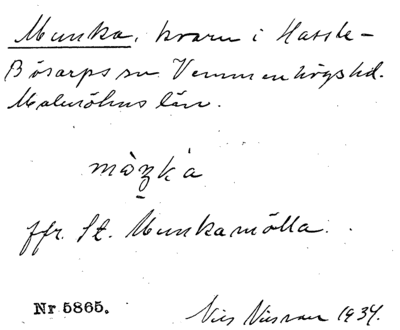 Munka, kvarn i Hassle-
Bösarps sn Vemmenhögs hd.
Malmöhus län.
mòŋ̱k'a
ffr. St. Munkamölla.
Nr 5865. 1934.